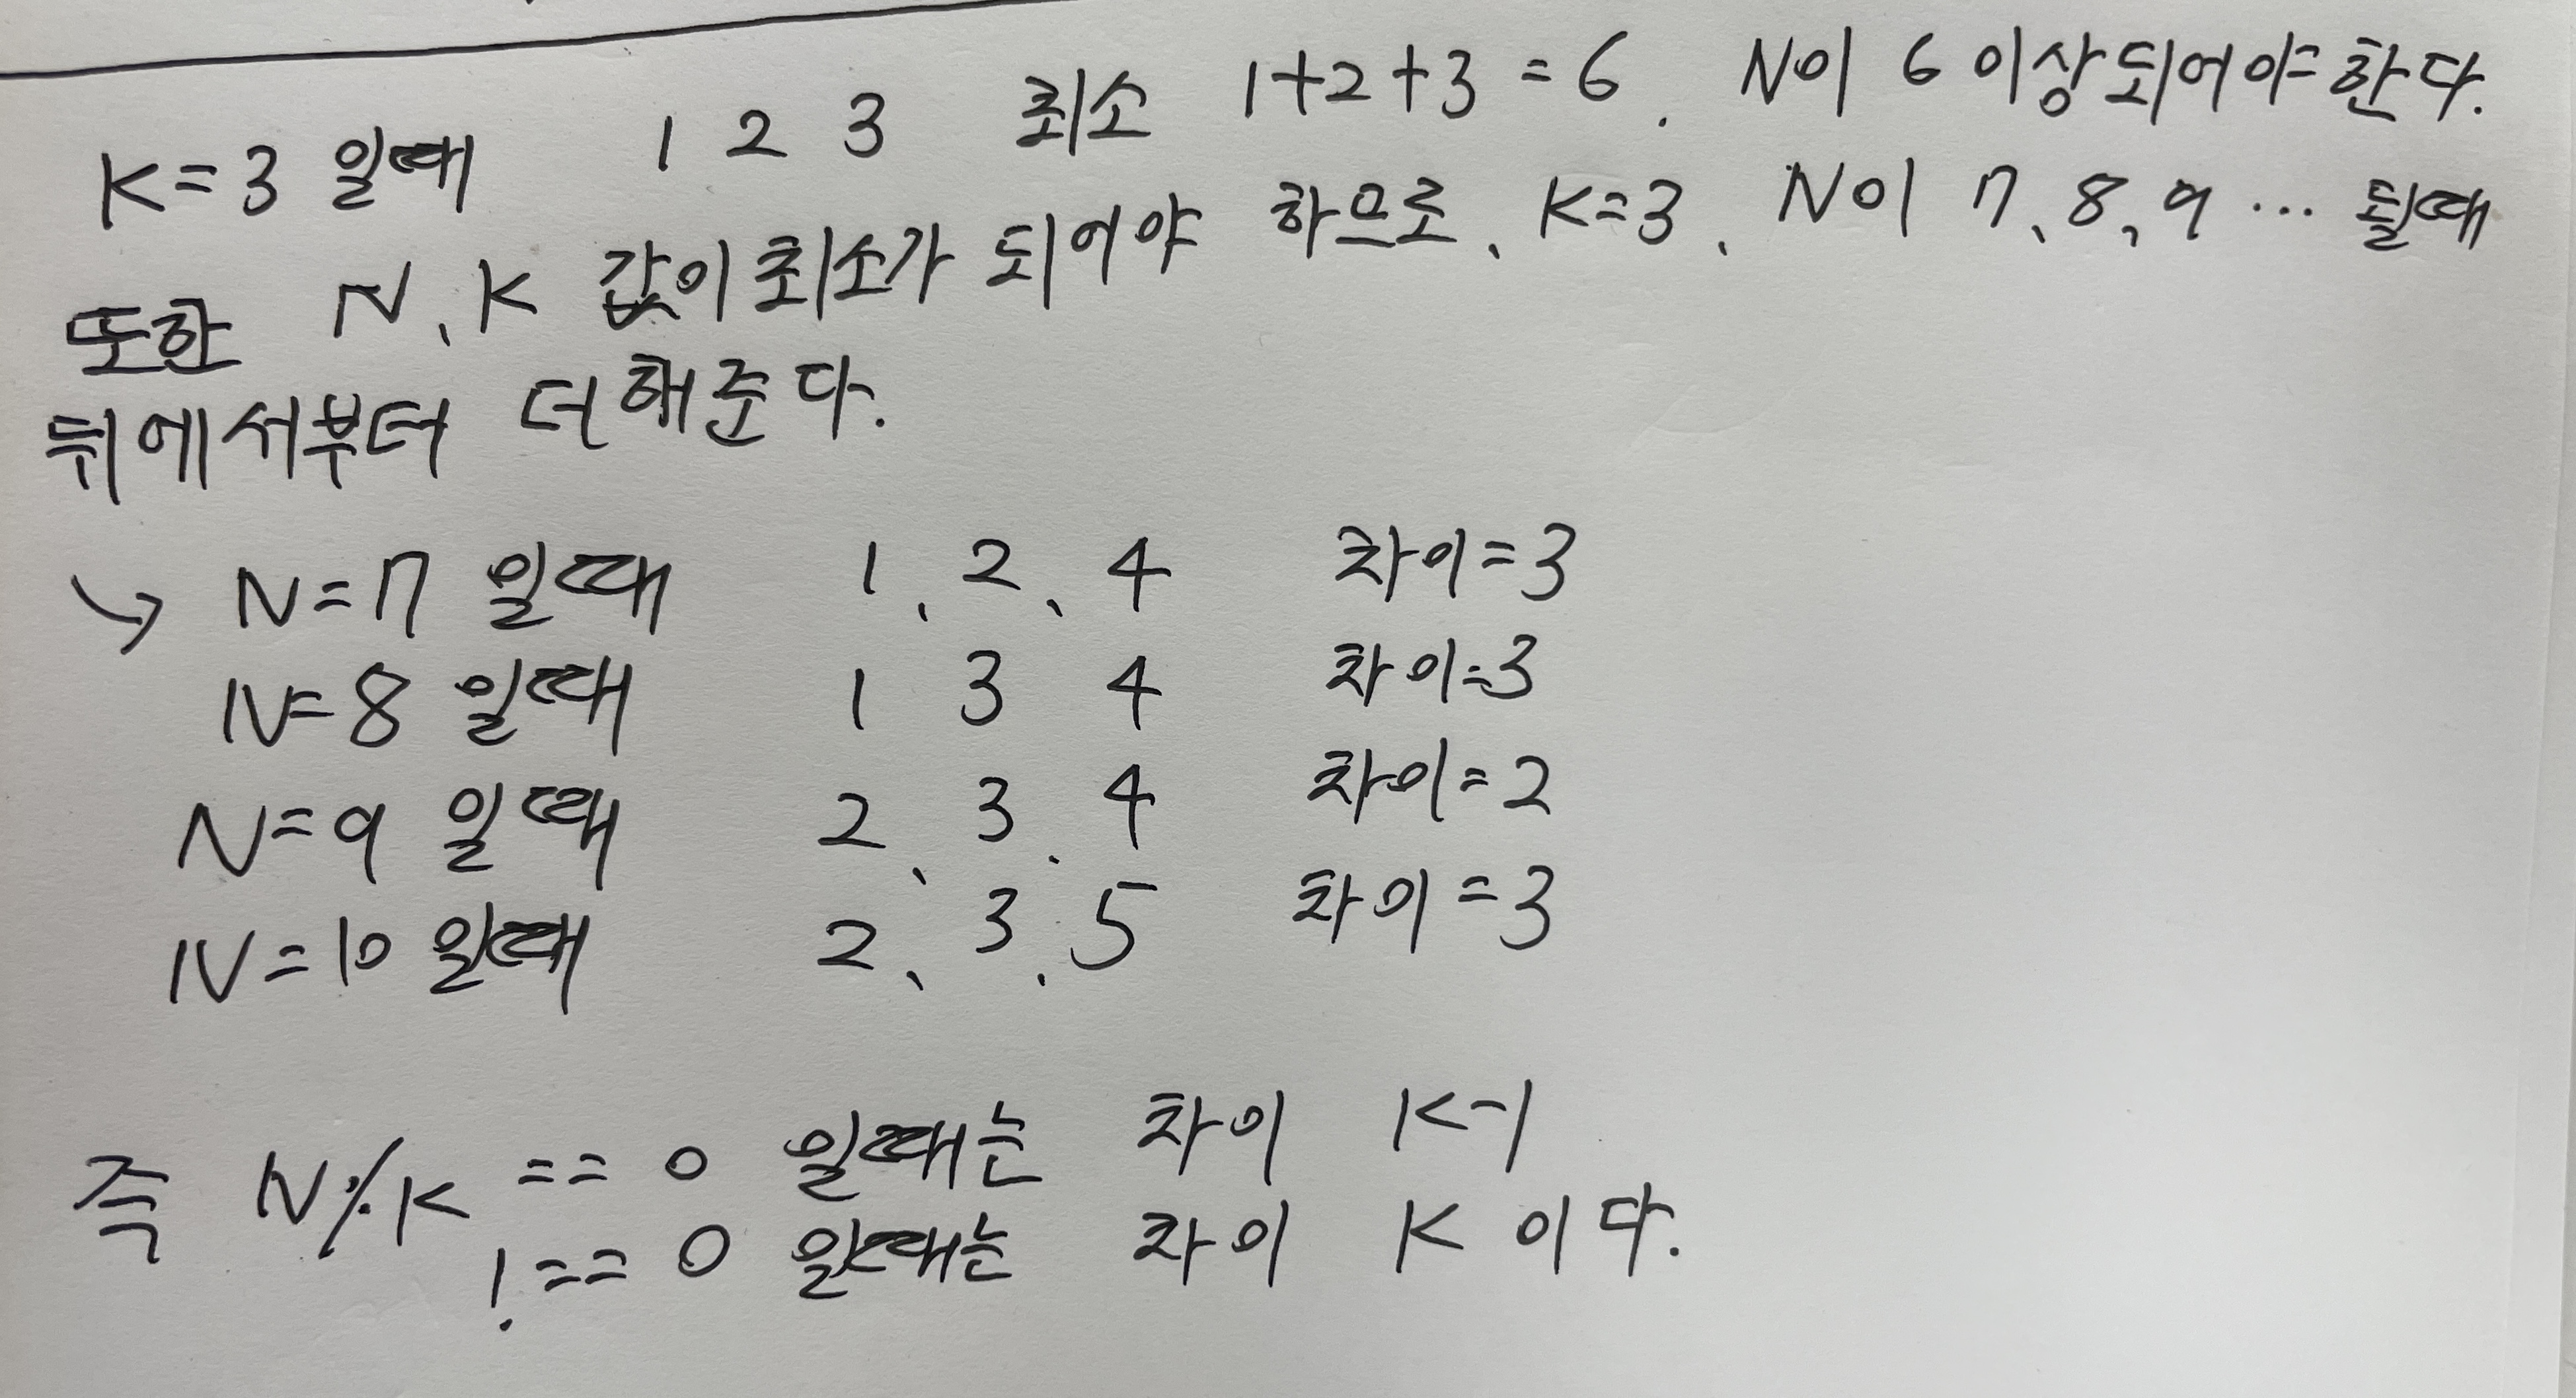 K=3 일때 1 2 3 최소 1+2+3=6. N이 6 이상되어야 한다.
또한 N、K 값이 최소가 되어야 하으로、K=3、N이 7、8、9 ... 될때
뒤에서부터 더해준다.
↘ N=7 일때 1、2、4 차이=3
N=8 일때 1 3 4 차이=3
N=9 일때 2、3、4 차이=2
N=10 일때 2、3、5 차이=3
즉 N%K == 0 일때는 차이 K-1
!== 0 일때는 차이 K 이다.